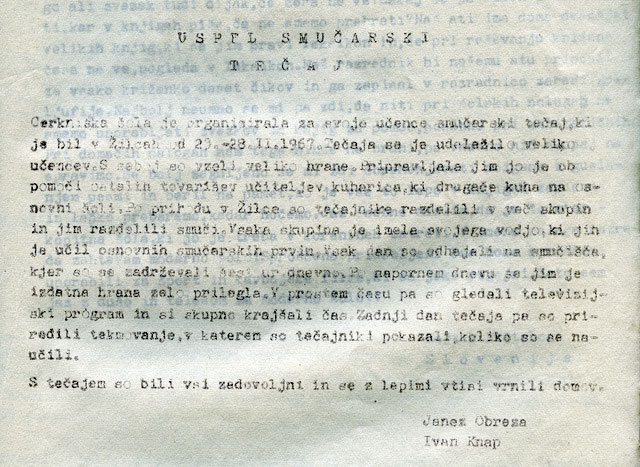 USPEL SMUČARSKI
TEČAJ
Cerkniška šola je organizirala za svoje učence smučarski tečaj,ki
je bil v Žilcah od 23.-28.II.1967.Tečaja se je udeležilo veliko
učencev.S seboj so vzeli veliko hrane.Pripravljala jim jo je ob
pomoči ostalih tovarišev učiteljev,kuharica,ki drugače kuha na os-
novni šoli.Po prihodu v Žilce so tečajnike razdelili v več skupin
in jim razdelili smuči.Vsaka skupina je imela svojega vodjo,ki jih
je učil osnovnih smučarskih prvin.Vsak dan so odhajali na smučišča,
kjer so se zadrževali šest ur dnevno.Po napornem dnevu se jim je
izdatna hrana zelo prilegla.V prostem času pa so gledali televizij-
ski program in si skupno krajšali čas.Zadnji dan tečaja pa so pri-
redili tekmovanje,v katerem so tečajniki pokazali,koliko so se na-
učili.
S tečajem so bili vsi zadovoljni in se z lepimi vtisi vrnili domov.
Janez Obreza
Ivan Knap